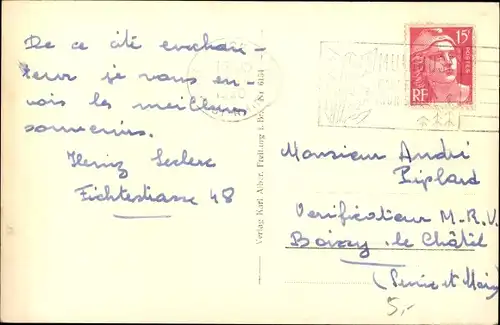 De ce été enchan-
teur je vous en-
vois les meilleurs
souvenirs.
Heinz Leclerc
Fichtestrasse 48
Verlag Karl Alber, Freiburg i. Br. Nr. 6154
15F
POSTES
RF
Monsieur André
Piplard
Vérificateur M.R.V.
Boissy le Châtel
(Seine et Marne)
5,-